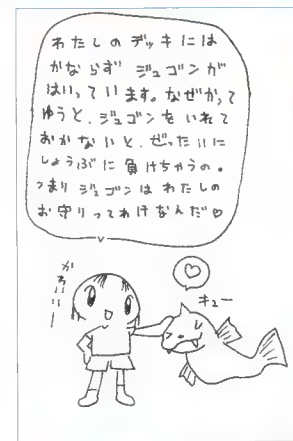 わたしのデッキには
かならず ジュゴンが
はいっています。なぜかって
ゆうと、ジュゴンをいれて
おかないと、ぜったいに
しょうぶに負けちゃうの。
つまりジュゴンはわたしの
お守りってわけなんだ♡
かわいいー
♡
キュー